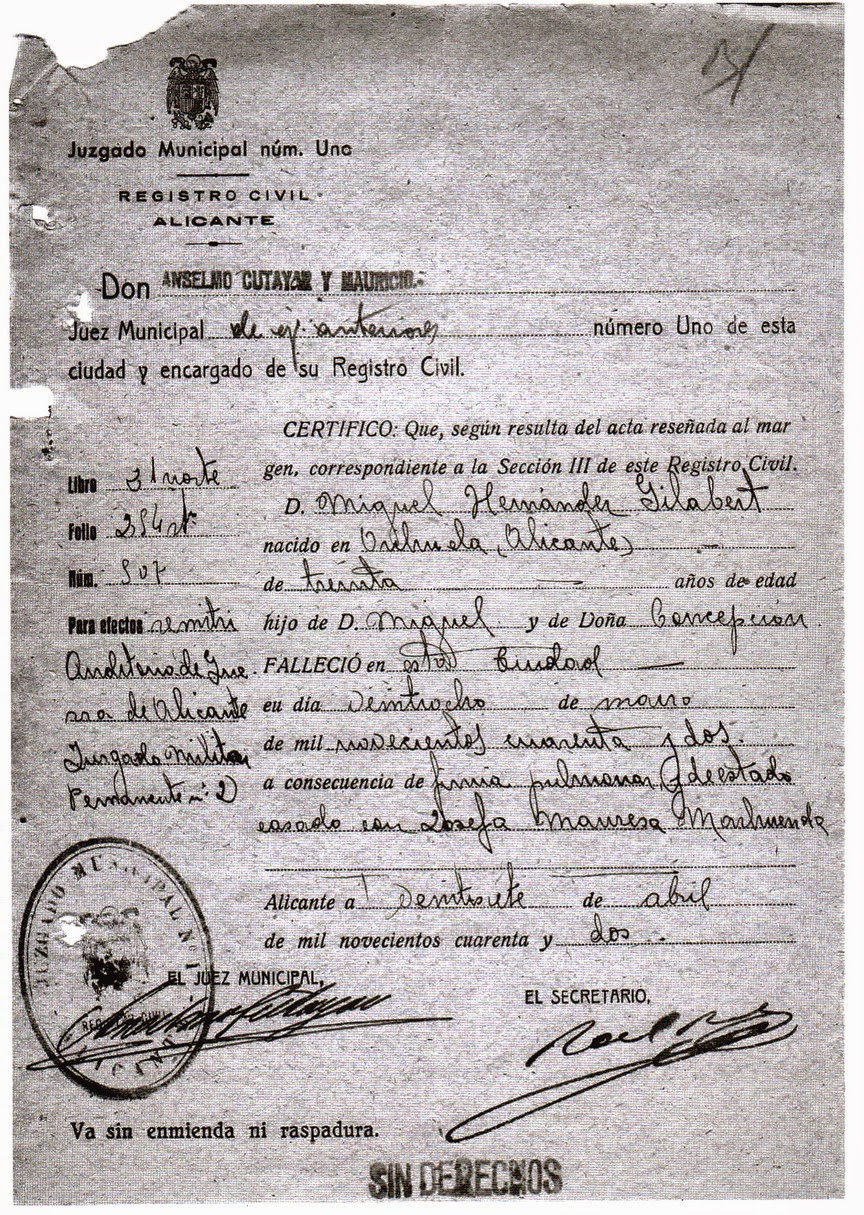 Juzgado Municipal núm. Uno
REGISTRO CIVIL
ALICANTE
Don ANSELMO CUTAYAR Y MAURICIO.
Juez Municipal de anteriores número Uno de esta
ciudad y encargado de su Registro Civil.
CERTIFICO: Que, según resulta del acta reseñada al mar
gen, correspondiente a la Sección III de este Registro Civil.
Libro 31 norte
D. Miguel Hernández Gilabert
Folio 254
nacido en Orihuela (Alicante)
Núm. 507
de treinta años de edad
Para efectos remitir
hijo de D. Miguel y de Doña Concepción
Auditoria de Gue-
FALLECIÓ en esta Ciudad
rra de Alicante
eu día veintiocho de marzo
Juzgado Militar
de mil novecientos cuarenta y dos.
Permanente nº 2)
a consecuencia de pulmonar y de estado
casado con Josefa Manresa Marhuenda
Alicante a veintisiete de abril
de mil novecientos cuarenta y dos.
JUZGADO MUNICIPAL N.º 1
ALICANTE
EL JUEZ MUNICIPAL,
EL SECRETARIO,
Va sin enmienda ni raspadura.
SIN DERECHOS